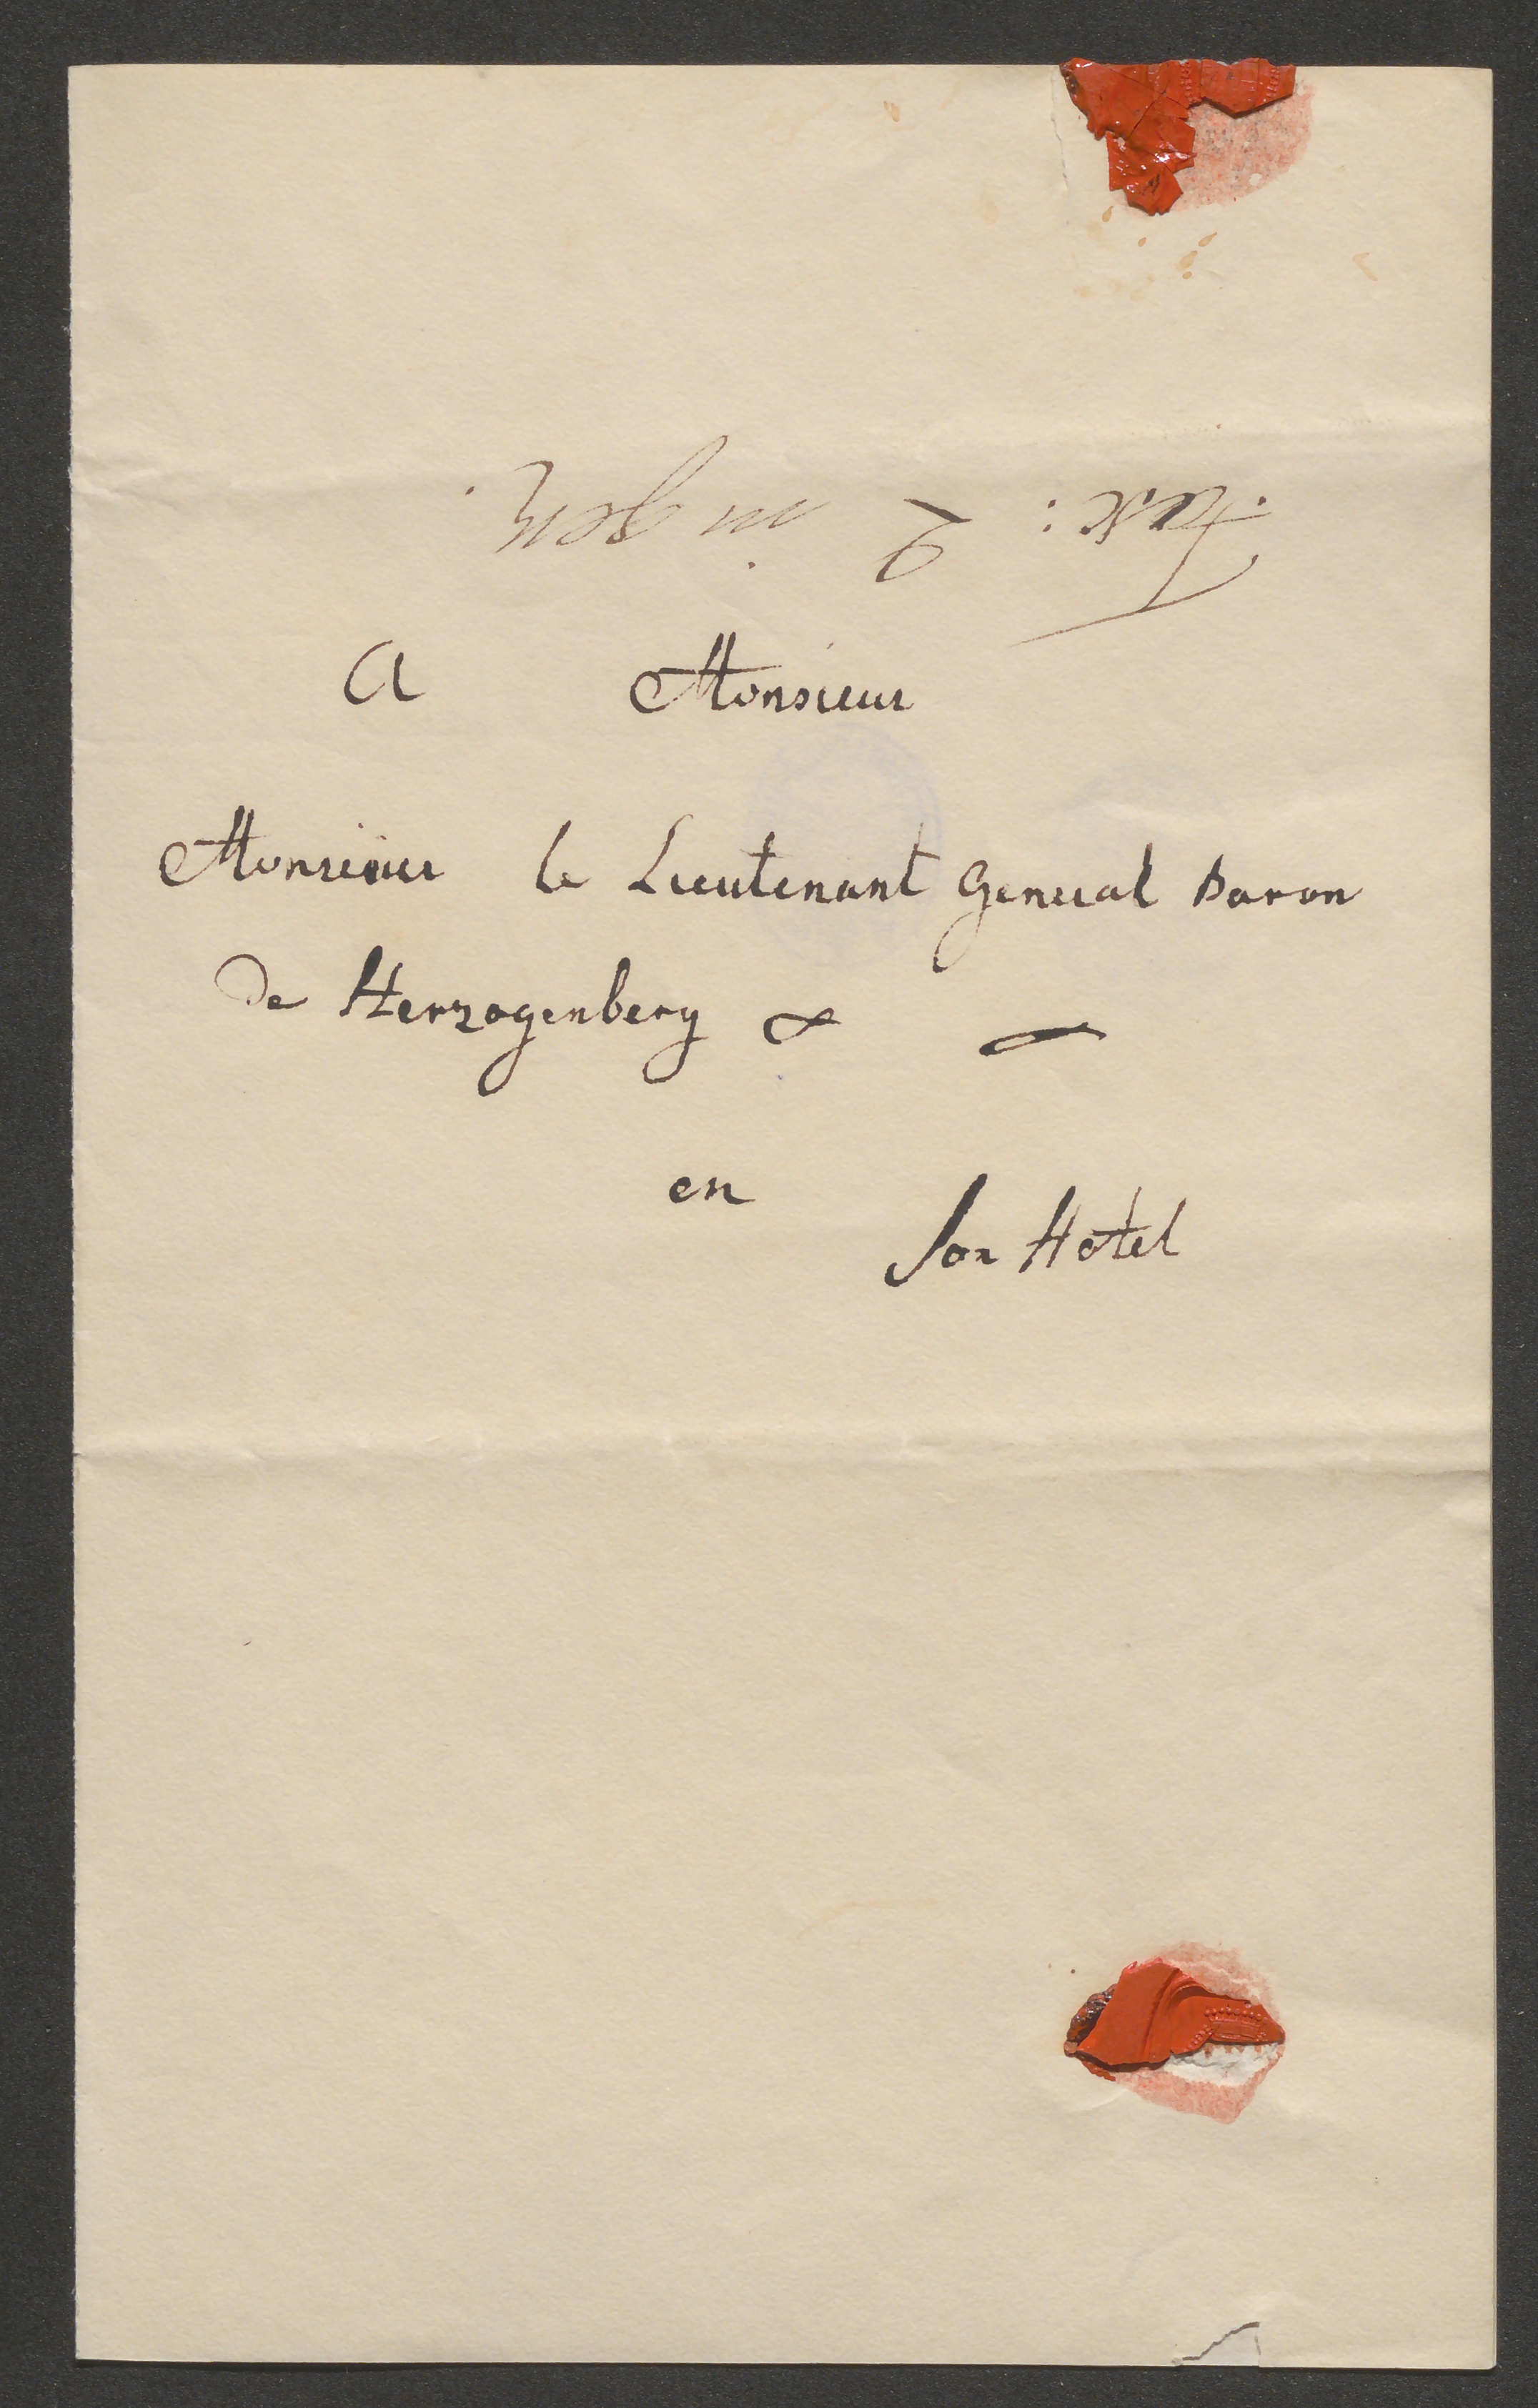 A Monsieur
Monsieur le Lieutenant General Baron
de Herzogenberg
en
Son Hotel